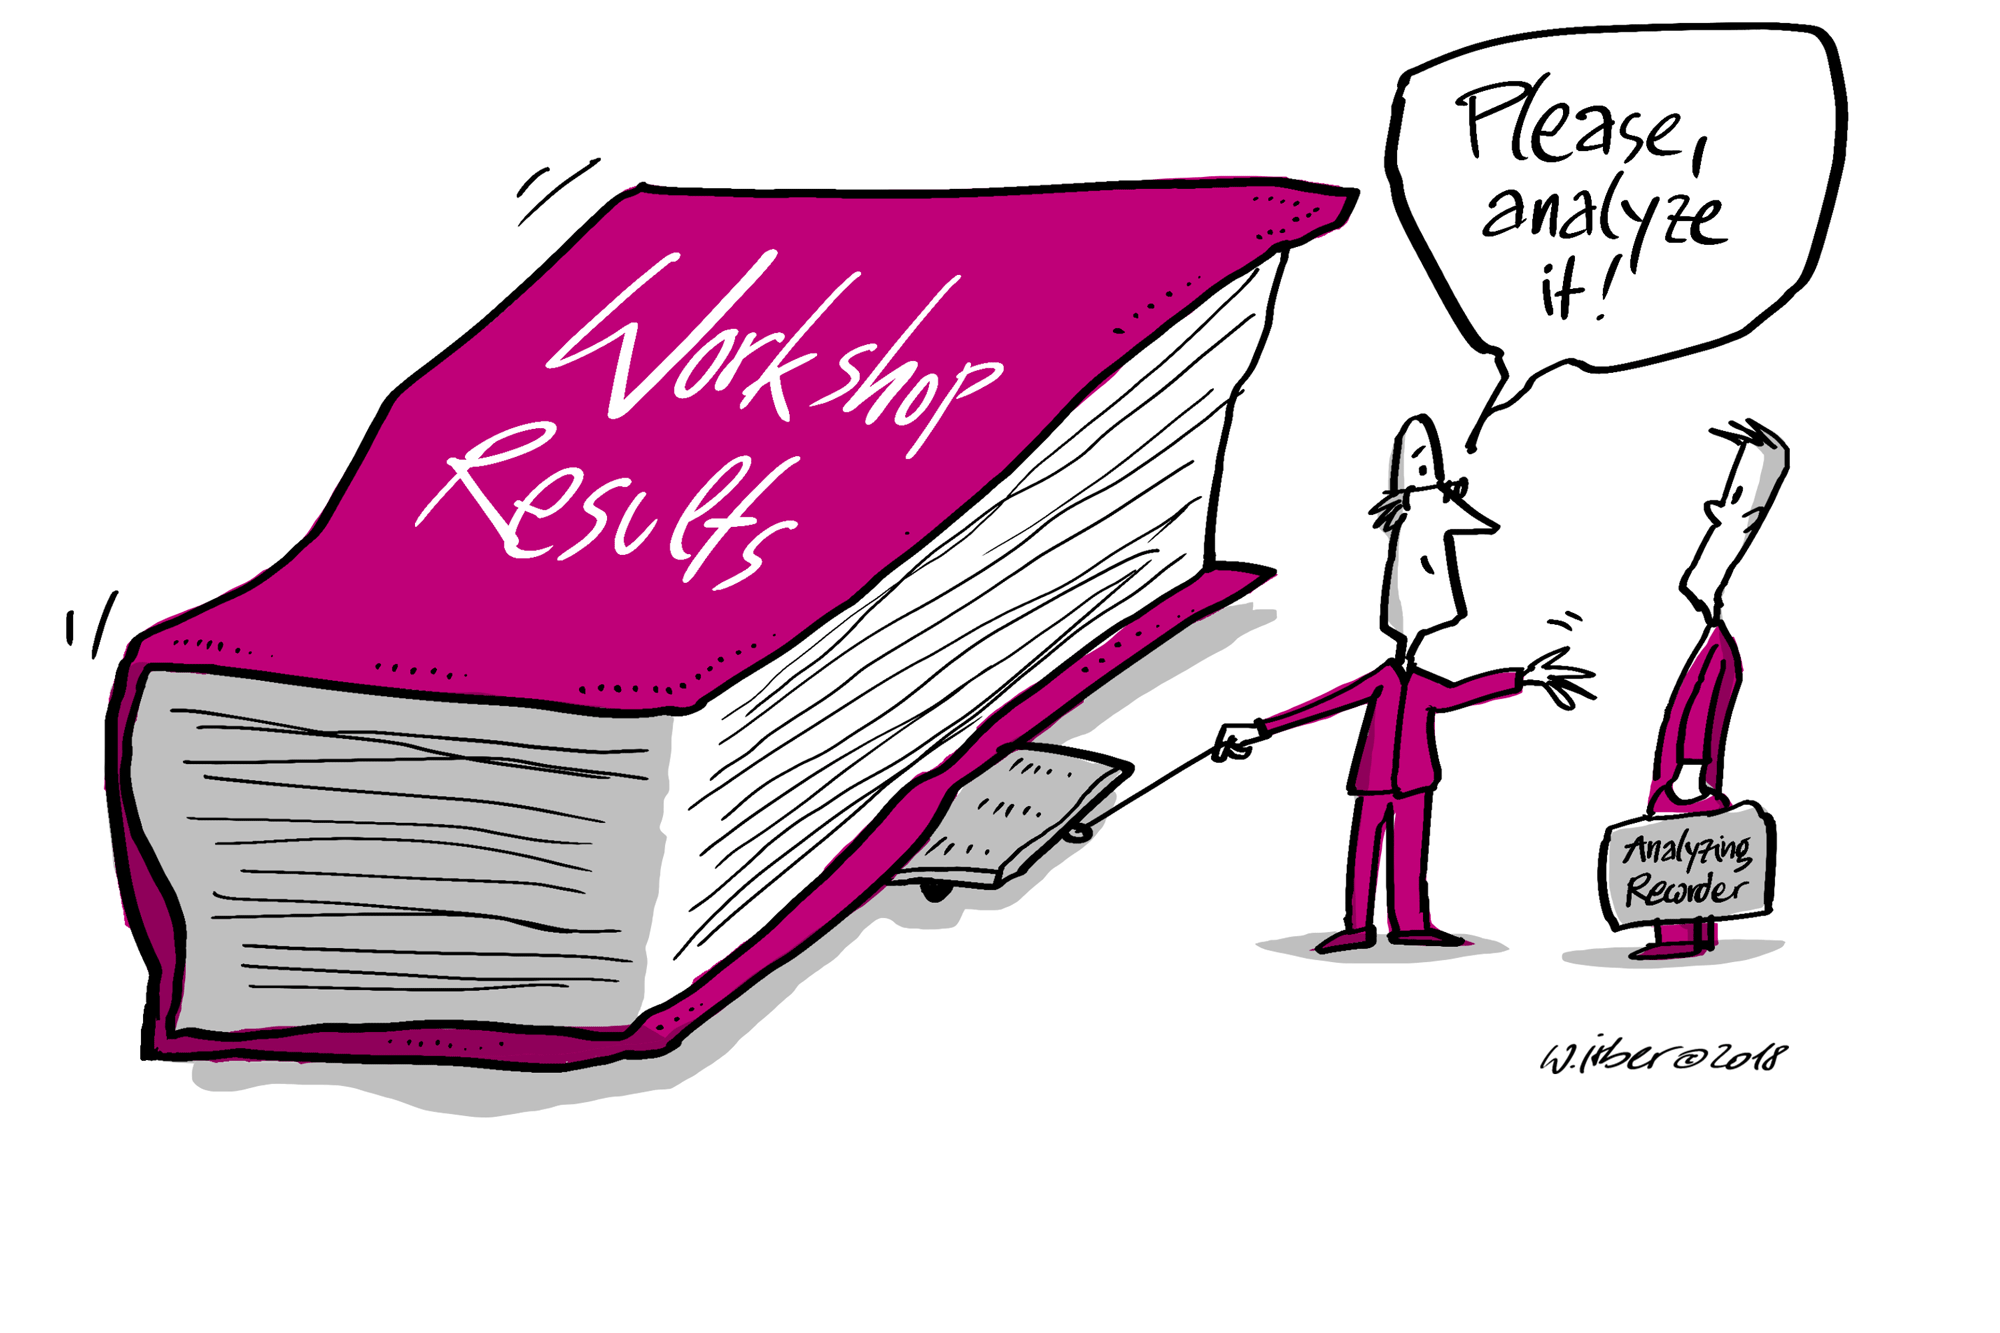 Please,
analyze
it!
Workshop
Results
Analyzing
Recorder
©2018